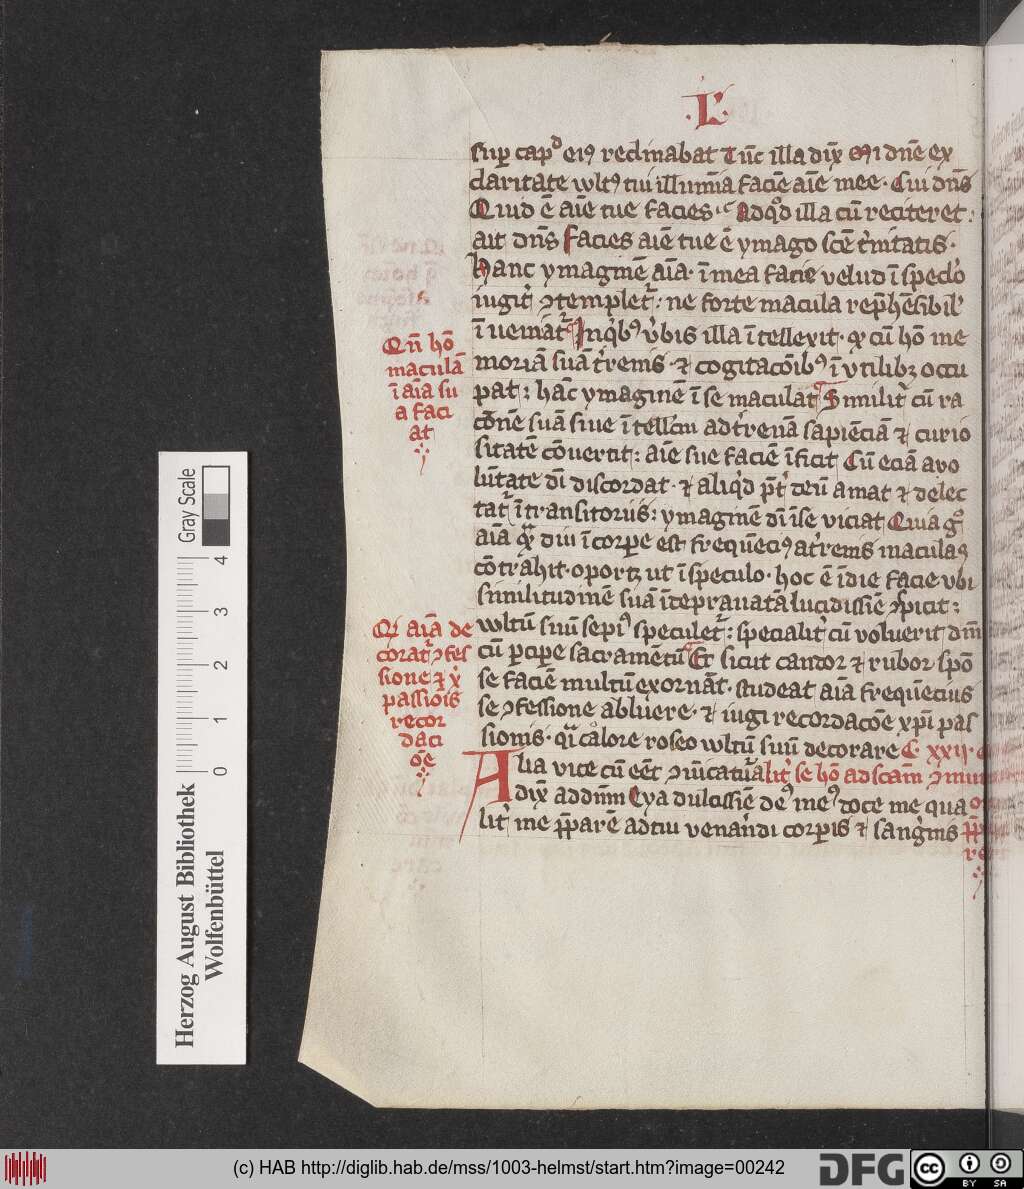 ·L·
sup capͩ eiꝯ reclinabat Tūc illa dix̄ Mi dn̄e ex
claritate wltꝯ tui illumīa faciē aīe mee · Cui dn̄s
Quid ē aīe tue facies · Adqͦd illa cū reciteret :
ait dn̄s facies aīe tue ē ymago scē tͥnitatis ·
hanc ymaginē aīa · ī mea facie velud ī spēclo
iugit̾ ꝯtemplet᷑ : ne forte macula rep̄hēsibil̾
ī ueniat᷑ Inqͥbꝯ v̾bis illa ītellexit · qꝫ cū hō me
moriā suā t̾renis · ⁊ cogitacōibꝯ ī vtilibꝫ occu
pat : hāc ymaginē ī se maculat Similit̾ cū ra
cōne suā siue ītellc̄m ad t̾renā sapiēciā ⁊ curio
sitatē cōuertit : aīe sue faciē īficit Cū eciā a vo
lūtate dī discordat · ⁊ aliqͥd p̄t̾ deū amat ⁊ delec
tat᷑ ī transitoriis : ymaginē dī ī se viciat Quia gͦ
aīā qͣ diu ī corꝑe est frequēciꝯ a t̾renis maculas
cōtrahit · oportꝫ ut ī speculo · hoc ē ī die facie vbi
similitudinē suā ītepranatā lucidissīe ꝯspicit :
wltū suū sepiꝯ speculet᷑ : specialit̾ cū voluerit dn̄i
cū ꝑciꝑe sacramētū Et sicut candor ⁊ rubor spō
se faciē multū exornāt · studeat aīa frequēcius
se ꝯfessione abluere · ⁊ iugi recordacōe xp̄i pas
sionis · qͣi calore roseo wltū suū decorare C · xxij ·
Alia vice cū eēt ꝯūicatūa lit̾ se hō ad scam̄ ꝯmu
dix̄ ad dn̄m Eya dulcissīe deꝯ meꝯ doce me qua
lit̾ me p̄parē ad tui venandi corꝑis ⁊ sangͥnis
Qn̄ hō
maculā
ī aīa su
a faci
at
Qͥ aīa de
corat᷑ ꝯfes
sione ⁊ x̄
passiōis
recor
daci
ōe
Herzog August Bibliothek
Wolfenbüttel
Gray Scale
0 1 2 3 4
(c) HAB http://diglib.hab.de/mss/1003-helmst/start.htm?image=00242
DFG
cc BY SA